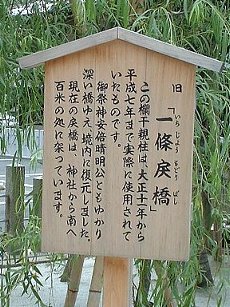 旧
「一條戻橋」
いちじょうもどりばし
この欄干親柱は、大正十一年から
平成七年まで実際に使用されて
いたものです。
御祭神安倍晴明公ともゆかり
深い橋ゆえ、境内に復元しました。
現在の戻橋は、神社から南へ
百米の処に架っています。